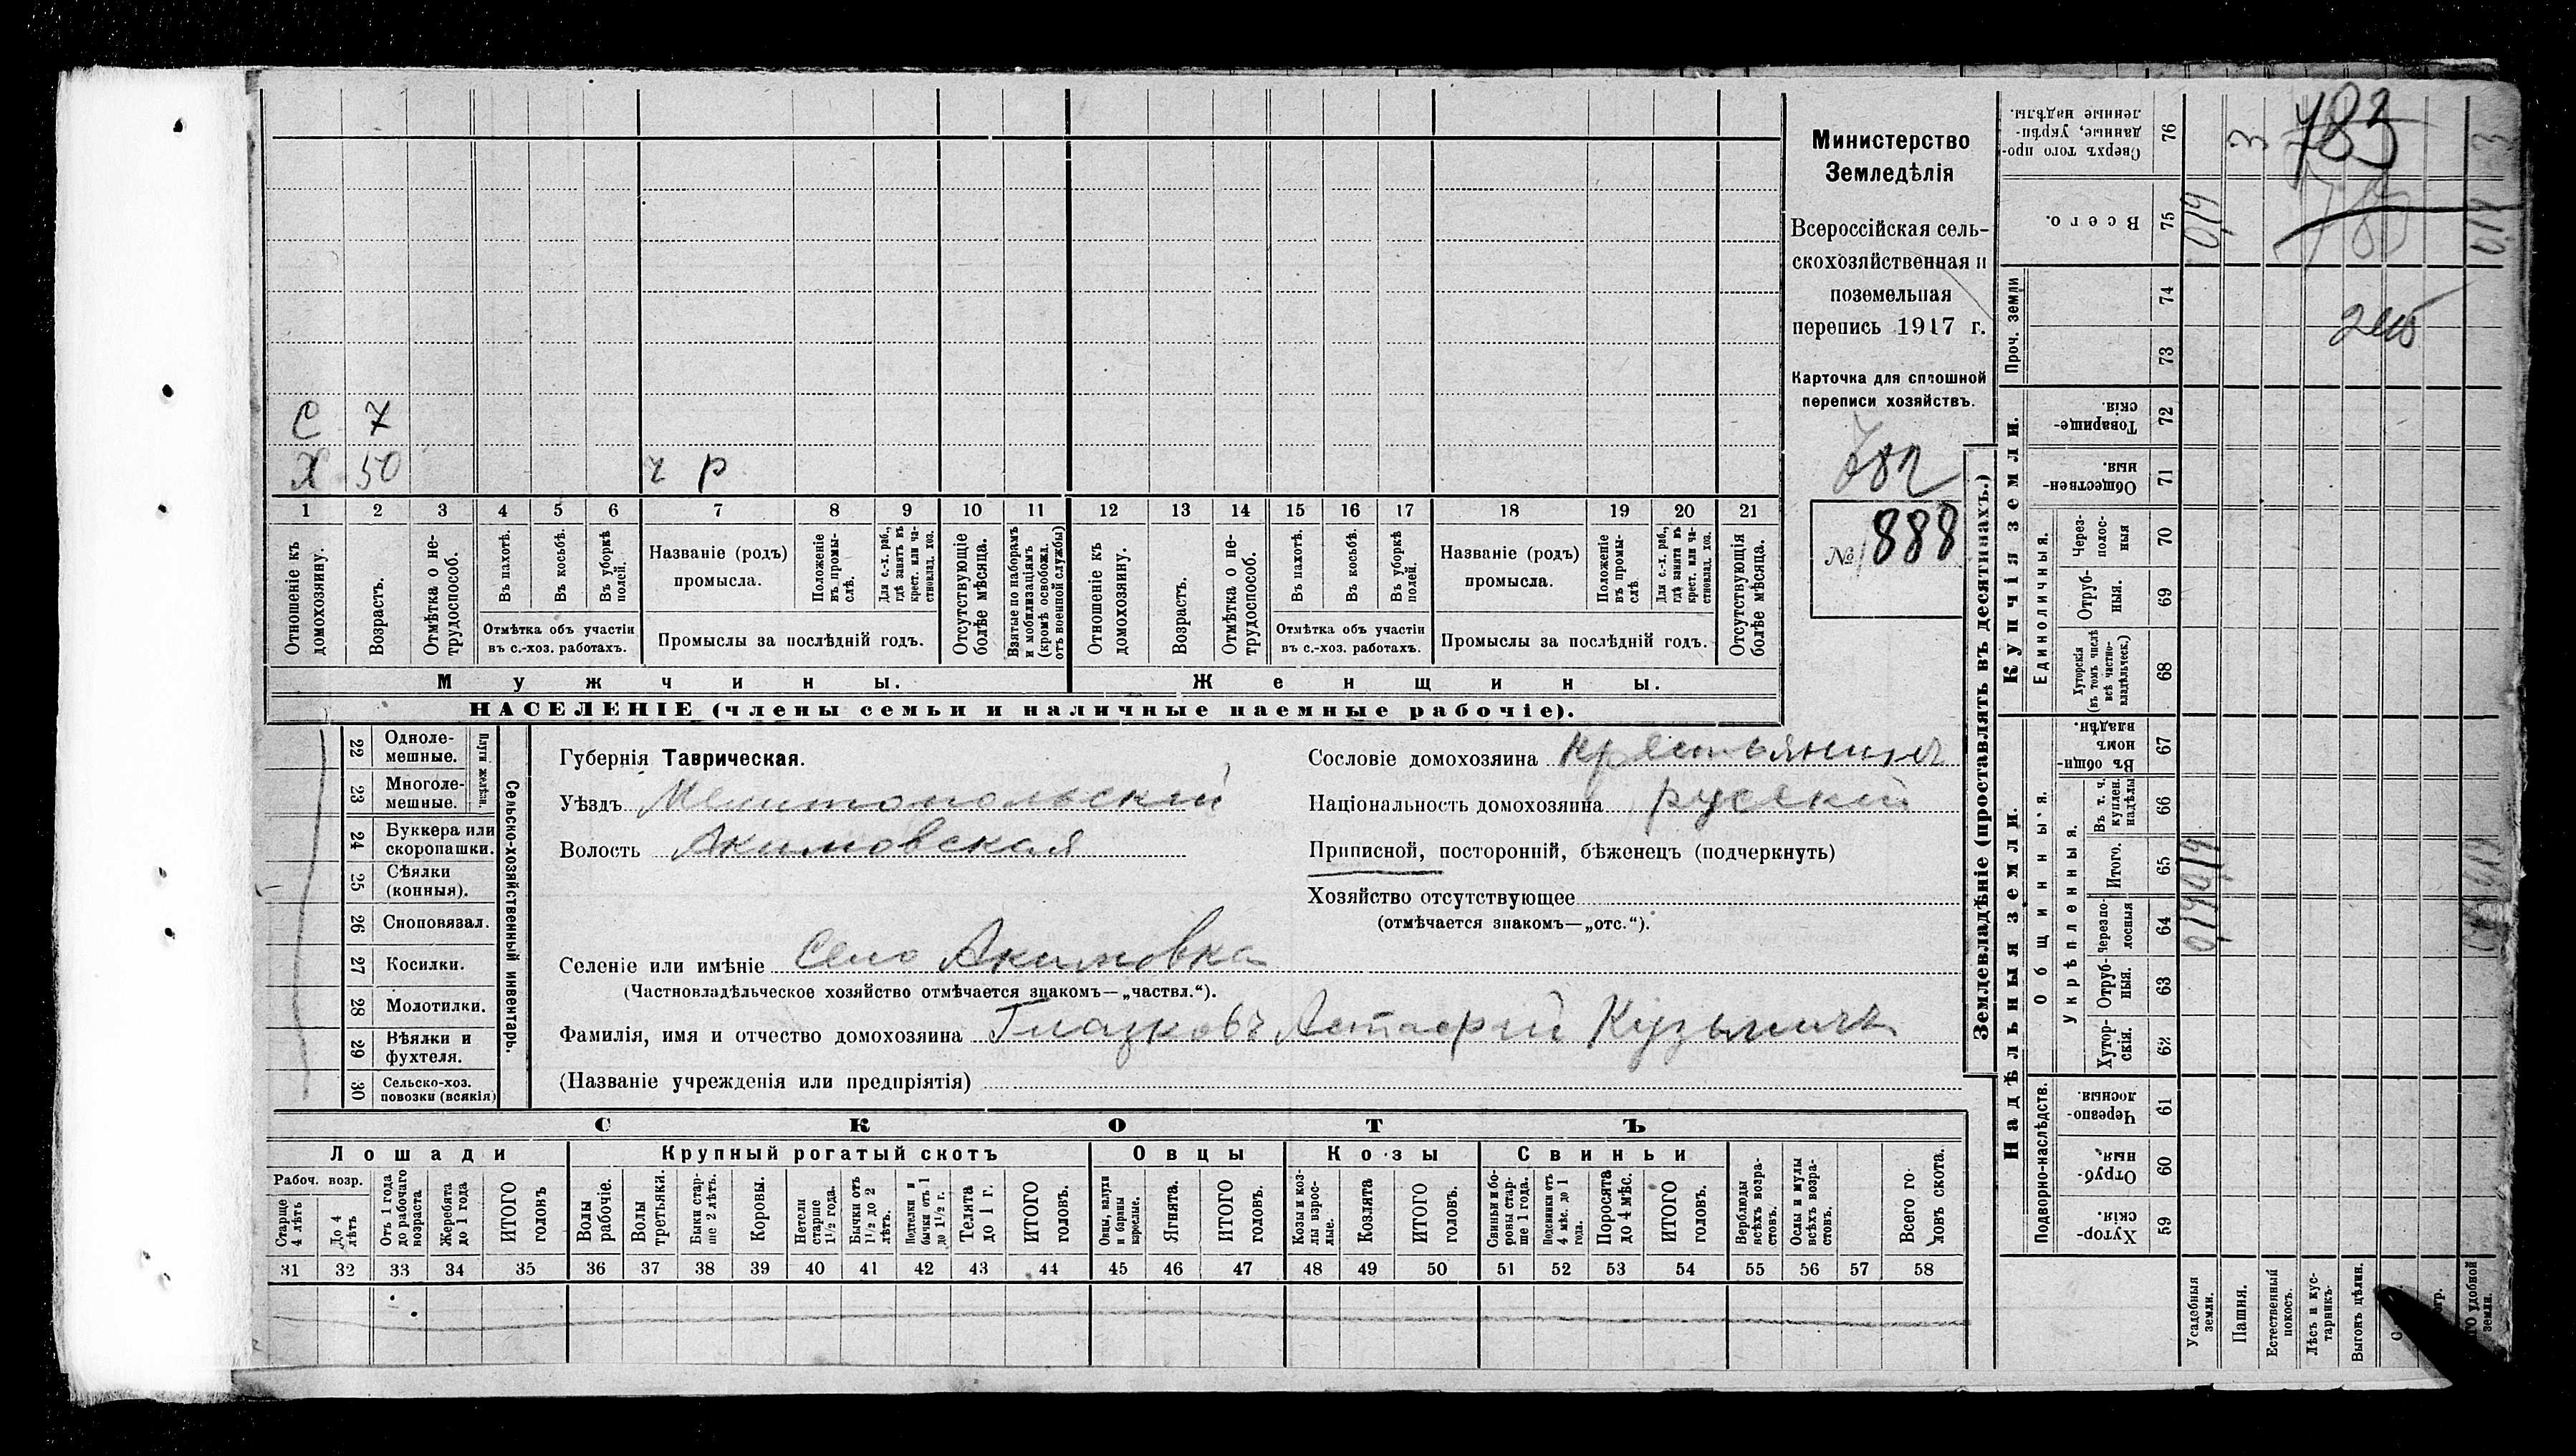 Министерство
Земледѣлія
Всероссійская сель-
скохозяйственная и
поземельная
перепись 1917 г.
Карточка для сплошной
переписи хозяйствъ.
782
№ 888
С 7
Х 50 ч р
1 2 3 4 5 6 7 8 9 10 11 12 13 14 15 16 17 18 19 20 21
Отношеніе къ домохозяину.
Возрастъ.
Отмѣтка о не-трудоспособ.
Въ пахотѣ.
Въ косьбѣ.
Въ уборкѣ полей.
Отмѣтка объ участіи
въ с.-хоз. работахъ.
Названіе (родъ)
промысла.
Положеніе въ промы-слѣ.
Для с.-х. раб., гдѣ занятъ въ крест. или ча-стновлад. хоз.
Промыслы за послѣдній годъ.
Отсутствующіе болѣе мѣсяца.
Взятые по наборамъ и мобилизаціямъ (кромѣ освобожд. отъ военной службы)
Отношеніе къ домохозяину.
Возрастъ.
Отмѣтка о не-трудоспособ.
Въ пахотѣ.
Въ косьбѣ.
Въ уборкѣ полей.
Отмѣтка объ участіи
въ с.-хоз. работахъ.
Названіе (родъ)
промысла.
Положеніе въ промы-слѣ.
Для с.-х. раб., гдѣ занята въ крест. или ча-стновлад. хоз.
Промыслы за послѣдній годъ.
Отсутствующія болѣе мѣсяца.
Мужчины.
Женщины.
НАСЕЛЕНІЕ (члены семьи и наличные наемные рабочіе).
22 Одноле-мешные.
23 Многоле-мешные.
Плуги желѣзн.
24 Буккера или скоропашки.
25 Сѣялки (конныя).
26 Сноповязал.
27 Косилки.
28 Молотилки.
29 Вѣялки и фухтеля.
30 Сельско-хоз. повозки (всякія)
Сельско-хозяйственный инвентарь.
Губернія Таврическая.
Уѣздъ Мелитопольскій
Волость Акимовская
Сословіе домохозяина крестьянинъ
Національность домохозяина русскій
Приписной, посторонній, бѣженецъ (подчеркнуть)
Хозяйство отсутствующее
(отмѣчается знакомъ—„отс.“).
Селеніе или имѣніе Село Акимовка
(Частновладѣльческое хозяйство отмѣчается знакомъ—„частвл.“).
Фамилія, имя и отчество домохозяина Глазковъ Астафій Кузьмичъ
(Названіе учрежденія или предпріятія)
СКОТЪ
Лошади
Крупный рогатый скотъ
Овцы
Козы
Свиньи
Рабоч. возр.
Старше 4 лѣтъ
До 4 лѣтъ
Отъ 1 года до рабочаго возраста
Жеребята до 1 года
ИТОГО головъ
Волы рабочіе.
Волы третьяки.
Быки стар-ше 2 лѣтъ.
Коровы.
Нетели старше 1½ года.
Бычки отъ 1½ до 2 лѣтъ.
Подтелки и бычки отъ 1 до 1½ г.
Телята до 1 г.
ИТОГО головъ.
Овцы, валухи и бараны взрослые.
Ягнята.
ИТОГО головъ.
Козы и коз-лы взрос-лые.
Козлята
ИТОГО головъ.
Свиньи и бо-ровы стар-ше 1 года.
Подсвинки отъ 4 мѣс. до 1 года.
Поросята до 4 мѣс.
ИТОГО головъ.
Верблюды всѣхъ возра-стовъ.
Ослы и мулы всѣхъ возра-стовъ.
Всего го-ловъ скота.
31 32 33 34 35 36 37 38 39 40 41 42 43 44 45 46 47 48 49 50 51 52 53 54 55 56 57 58
Землевладѣніе (проставлять въ десятинахъ.)
Надѣльныя земли.
Купчія земли.
Проч. земли
Подворно-наслѣдств.
Общинныя.
Укрѣпленныя.
Единоличныя.
Сверхъ того про-данные, укрѣп-ленные надѣлы. 76
Всего. 75
74
73
Товарище-скія. 72
Обществен-ныя. 71
Через-полос-ныя 70
Отруб-ныя. 69
Хуторскія (въ томъ числѣ всѣ частно-владѣльческ.) 68
Въ общин-номъ владѣн. 67
Въ т. ч. куплен. надѣлы 66
Итого. 65
Черезпо-лосныя 64
Отруб-ныя. 63
Хутор-скія. 62
Черезпо-лосныя. 61
Отруб-ныя. 60
Хутор-скія. 59
Усадебныя земли.
Пашня.
Естественный покосъ.
Лѣсъ и кус-тарникъ.
Выгонъ цѣлин.
удобной земли.
783
3
3